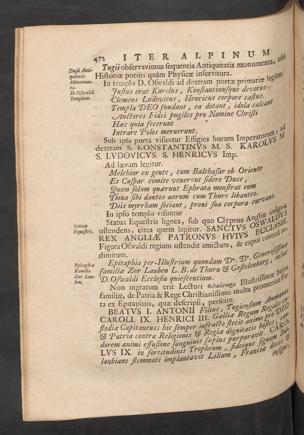 472 ITER ALPINUM
Tugii Anti-
quitatis
Monumen-
ta.
D. Oswaldi
Templum.
Tugii observavimus sequentia Antiquitatis monumenta,
Historiæ potiùs quàm Physicæ inservitura.
In templo D. Oswaldi ad dextram portæ primariæ legitur
Justus erat Karolus, Konstantinusque devotus
Clemens Ludovicus, Henricus corpore castus.
Templa DEO fundant, ea dotant, idola calcant
Auctores Fidei pugiles pro Nomine Christi
Hæc quia fecerunt
Intrare Polos meruerunt.
Sub ipsa porta visuntur Effigies horum Imperatorum, ad
dextram S. KONSTANTINVS M. S. KAROLVS M.
S. LVDOVICVS. S. HENRICVS Imp.
Ad lævam legitur.
Melchior ex gente, cum Balthasar ab Oriente
Et Caspar comite venerunt sidere Duce,
Quem solum quærunt Ephrata monstrat eum
Dona sibi dantes aurum cum Thure libantes.
Diis myrrham sociant, proni sua corpora curvant.
In ipso templo visuntur
Statua
Equestris.
Statua Equestris lignea, sub quo Clypeus Angliæ insignia
ostendens, circa quem legitur. SANCTUS OSWALDUS
REX ANGLIÆ PATRONUS HVIVS ECCLESIÆ.
Figura Oswaldi regium ostendit amictum, & caput corona re-
dimitum.
Epitaphia
Familiæ
Zur Lau-
ben.
Epitaphia per-Illustrium quondam Dn. Dn. Generosissimæ
familiæ Zur Lauben L. B. de Thurn & Gestelenburg, in hac
D. Oswaldi Ecclesia quiescentium.
Non ingratum erit Lectori Illustrissimæ hujus
familiæ, de Patria & Rege Christianissimo multa promeritæ
ta ex Epitaphiis, quæ descripsi, perspicere.
BEATUS I. ANTONII Filius, Tugiensium Ammanus
CAROLI IX. HENRICI III. Galliæ Regum Regiæ
stodiæ Capitaneus; hic semper infracto stetit animo pro
& Patria contra Religionis & Regiæ dignitatis hostes;
dorem animi effusione sanguinis sæpius purpuravit. CARO-
LVS IX. in fortitudinis Trophæum, fideique signum
laubiano stemmati implantavit Lilium,